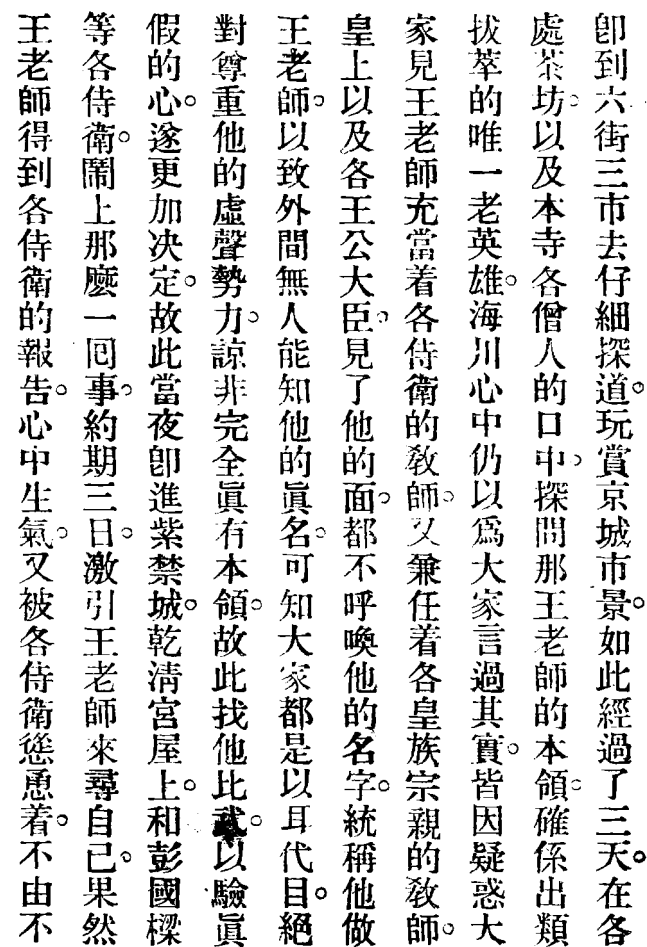 卽到六街三市去仔細探道。玩賞京城市景。如此經過了三天。在各
處茶坊。以及本寺各僧人的口中。探問那王老師的本領。確係出類
拔萃的唯一老英雄。海川心中仍以爲大家言過其實。皆因疑惑大
家見王老師充當着各侍衛的敎師。又兼任着各皇族宗親的敎師。
皇上以及各王公大臣。見了他的面。都不呼喚他的名字。統稱他做
王老師。以致外間無人能知他的眞名。可知大家都是以耳代目。絕
對尊重他的虛聲勢力。諒非完全眞有本領。故此找他比武。以驗眞
假的心。遂更加决定。故此當夜卽進紫禁城。乾淸宮屋上。和彭國樑
等各侍衛。鬧上那麽一囘事。約期三日。激引王老師來尋自己。果然
王老師得到各侍衛的報告。心中生氣。又被各侍衛慫恿着。不由不